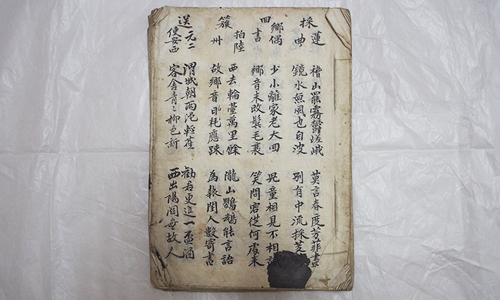 採蓮曲
稽山羅霧鬱嵯峨 莫言春度芳菲盡
鏡水無風也自波 別有中流採芰
回鄉偶書
少小離家老大回 兒童相見不相
鄉音未改鬢毛衰 笑問客從何處來
簇拍陸州
西去輪臺萬里餘 隴山鸚鵡能言語
故鄉音日耗應踈 為報閨人數寄書
送元二使安西
渭城朝雨浥輕塵 勸君更進一盃酒
客舍青〻柳色新 西出陽關無故人